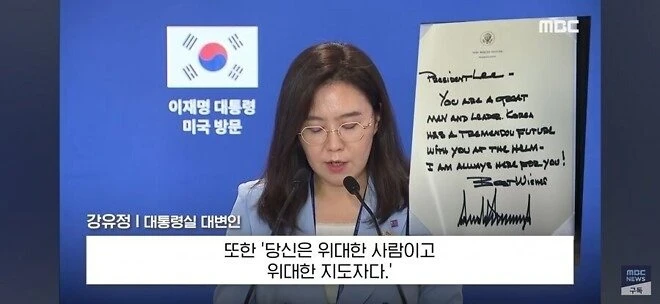 MBC
이재명 대통령
미국 방문
PRESIDENT LEE -
YOU ARE A GREAT
MAN AND LEADER. KOREA
HAS A TREMENDOUS FUTURE
WITH YOU AT THE HELM -
I AM ALWAYS HERE FOR YOU!
BEST WISHES
강유정 | 대통령실 대변인
또한 '당신은 위대한 사람이고
위대한 지도자다.'
MBC
NEWS
구독